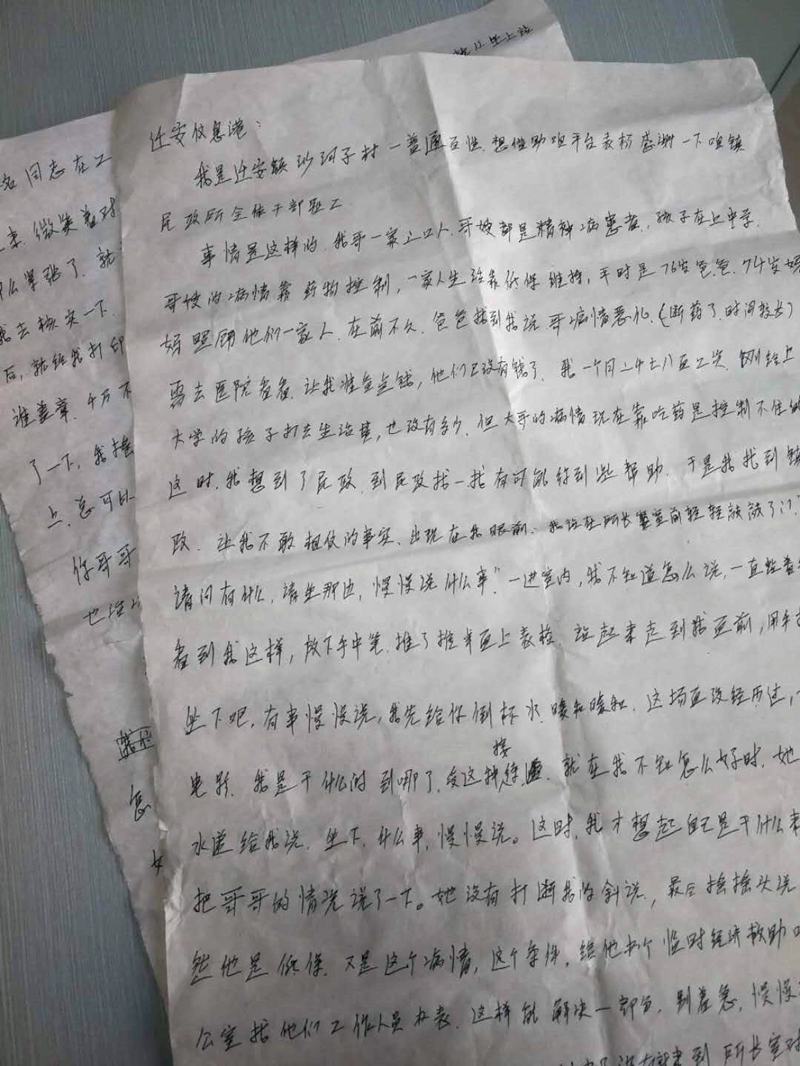 迁安信息港：
我是迁安镇沙河子村一普通百姓.想借助咱平台表扬感谢一下咱镇
民政所全体干部职工
事情是这样的.我哥一家三口人.哥嫂都是精神病患者.孩子在上中学.
哥嫂的病情靠药物控制，一家人生活靠低保维持，平时是76岁爸爸.74岁妈
妈照顾他们一家人.在前不久.爸爸找到我说哥病情恶化.(断药了.时间较长)
需去医院看看.让我准备点钱，他们已没有钱了.我一个月二千七八百工资.刚给上
大学的孩子打去生活费,也没有多少.但大哥的病情现在靠吃药是控制不住的
这时.我想到了民政.到民政找一找有可能得到些帮助.于是我找到镇
政.让我不敢相信的事实.出现在我眼前.我站在所长室门前轻轻敲敲了门.
请问有什么.请坐那边,慢慢说什么事"一进室内,我不知道怎么说,一直
看到我这样,放下手中笔.推了推桌面上表格.站起来走到我面前,用手
坐下吧,有事慢慢说,我先给你倒杯水.暖和暖和.这场面没经历过,
电影.我是干什么的到哪了.受这接待.就在我不知怎么好时.她
水递给我说.坐下.什么事.慢慢说。这时.我才想起自己是干什么来
把哥哥的情况说了一下。她没有打断我的斜说,最后摇摇头说
然他是低保.又是这个病情,这个条件.给他办个临时经济救助
公室找他们工作人员办表.这样能解决一部分,别着急,慢慢
到所长室对
名同志在工
微笑着对
么紧张了.就
我去核实一下.
后,就给我打印
谁盖章.千万不
了一下,我
上.总可以
你哥哥
也没
怎
女